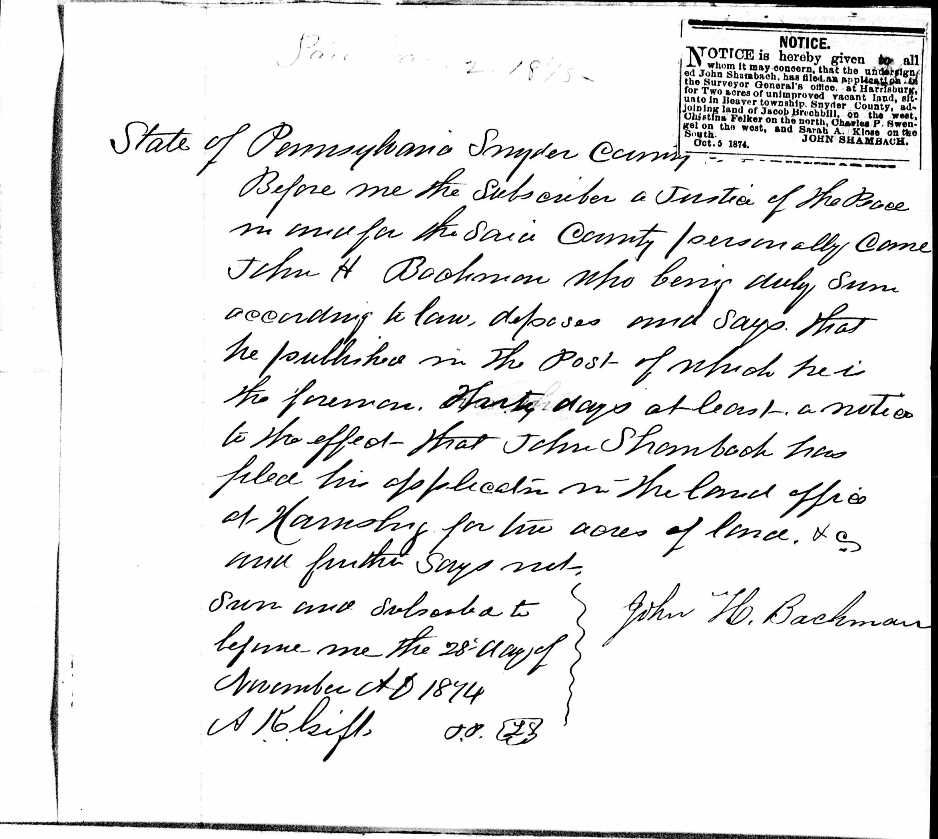 2. 1875
NOTICE.
NOTICE is hereby given to all
whom it may concern, that the undersign
ed John Shambach, has filed an application in
the Surveyor General's office, at Harrisburg,
for Two acres of unimproved vacant land, sit-
uate in Beaver township, Snyder County, ad-
joining land of Jacob Brechbill, on the west,
Christina Felker on the north, Charles P. Swen-
gel on the west, and Sarah A. Klose on the
South.
JOHN SHAMBACH.
Oct. 5 1874.
State of Pennsylvania Snyder County
Before me the Subscriber a Justice of the Peace
in and for the Said County personally Came
John H Bachman who being duly Sworn
according to law, deposes and Says that
he published in the Post of which he is
the foreman. Thirty days at least a notice
to the effect that John Shambach has
filed his application in the land office
at Harrisburg for two acres of land, & c
and further Says not.
Sworn and subscribed to
before me the 28 day of
November AD 1874
A K Gift J.P. LS
John H. Bachman